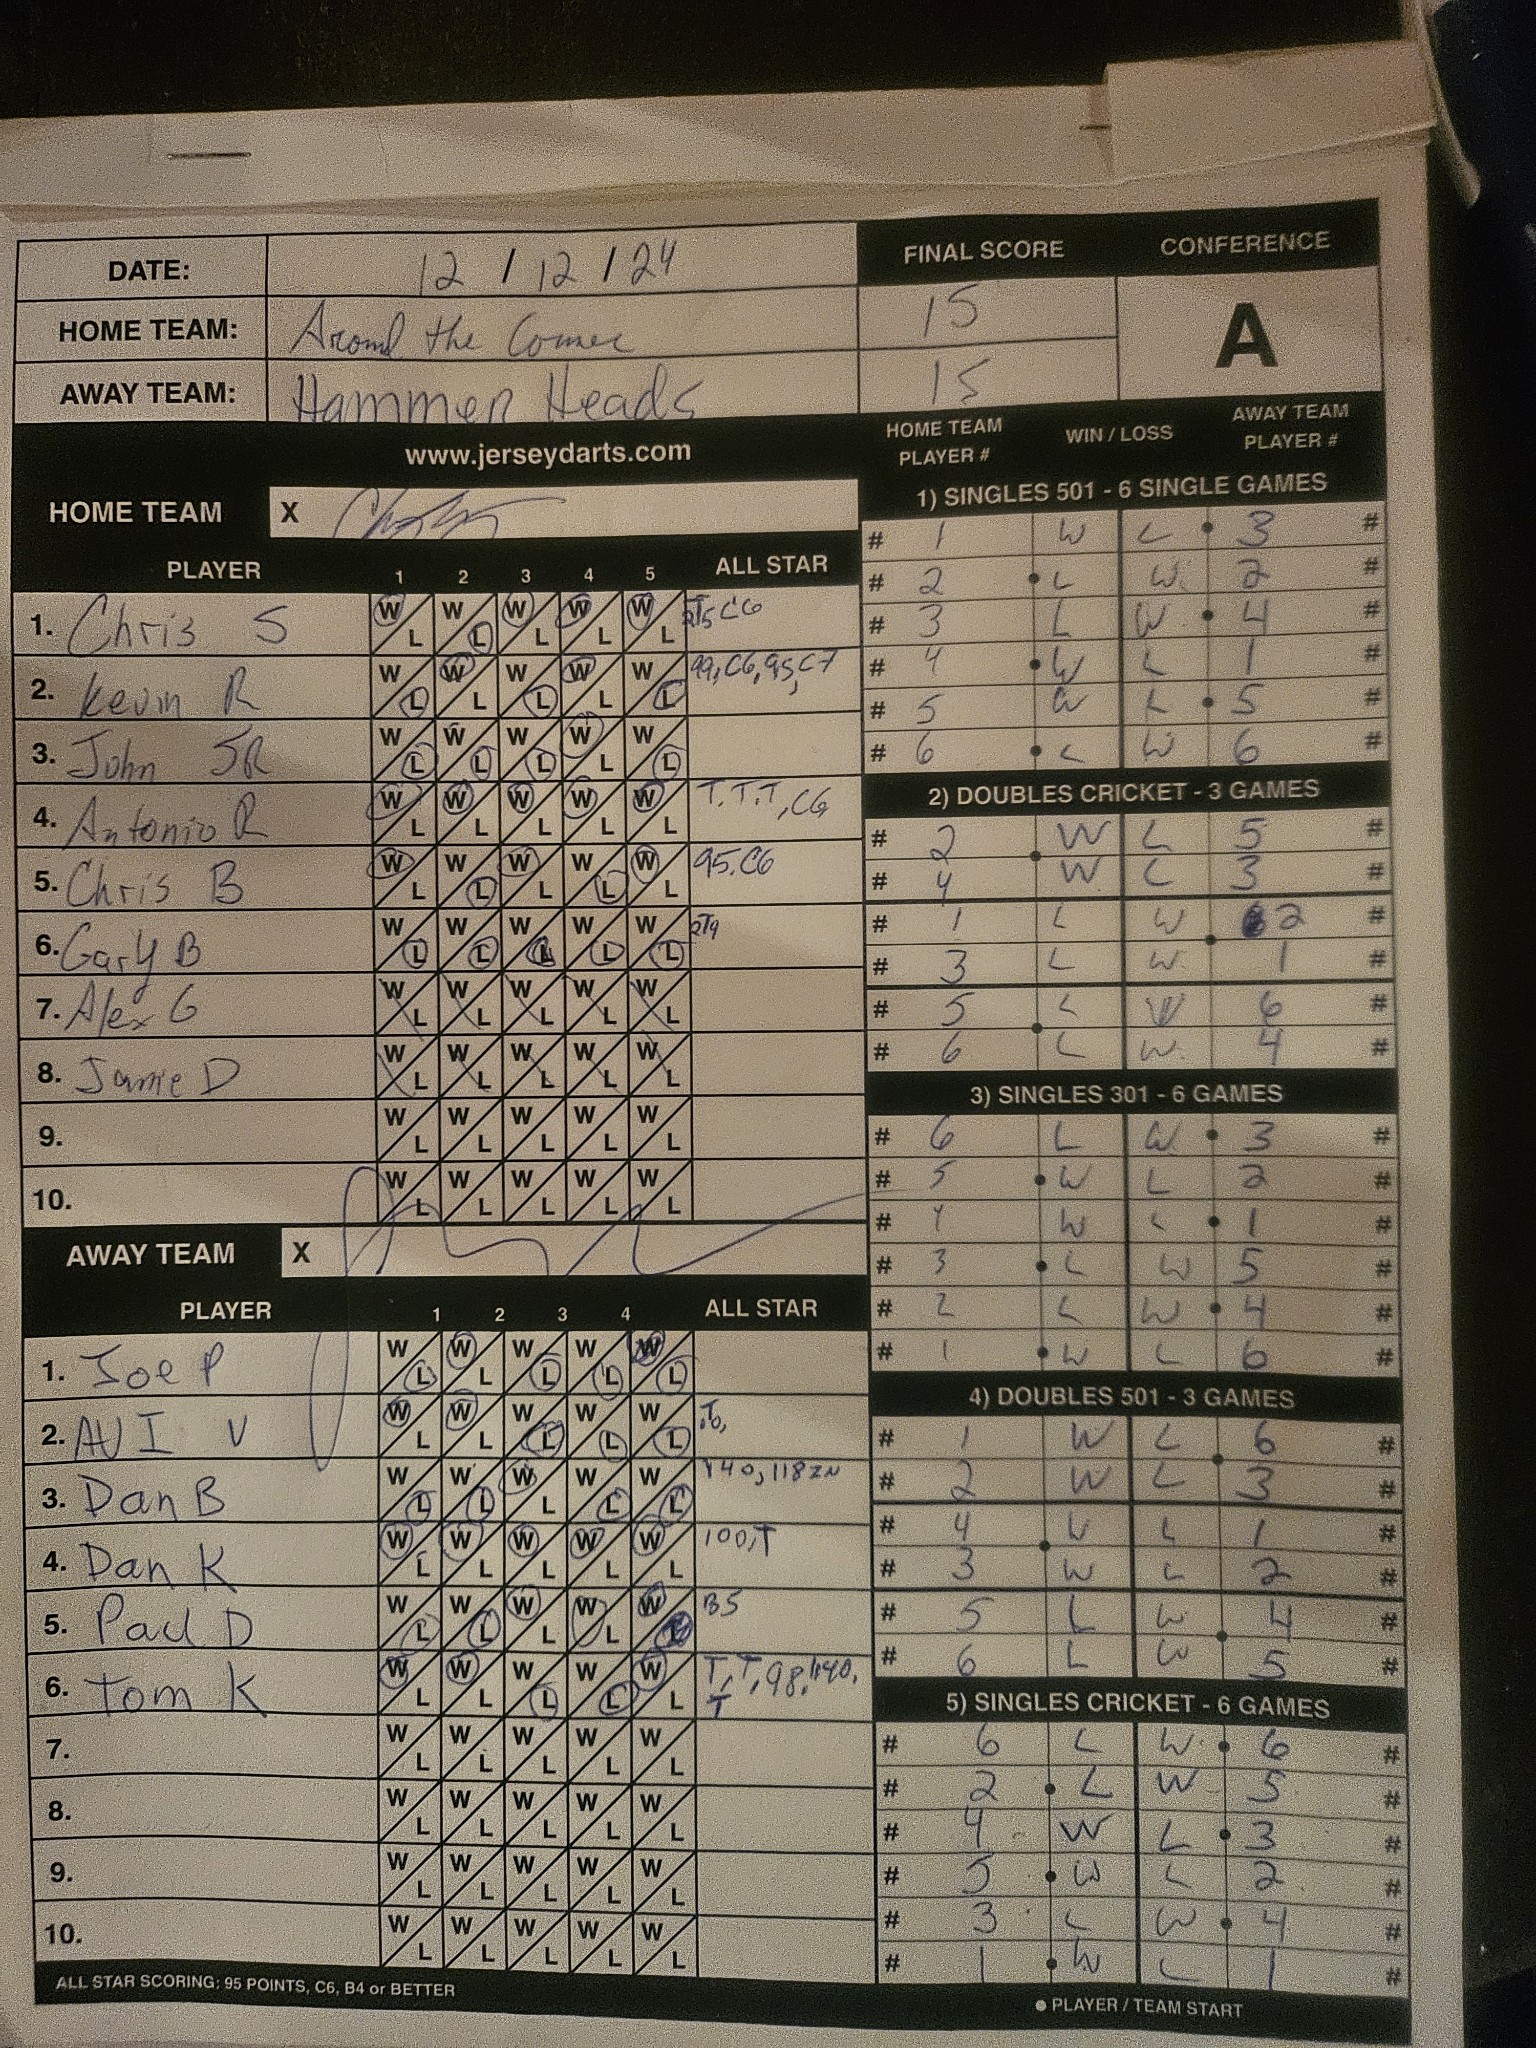 DATE: 12 / 12 / 24
FINAL SCORE CONFERENCE
HOME TEAM: Around the Corner 15
A
AWAY TEAM: Hammer Heads 15
www.jerseydarts.com
HOME TEAM PLAYER # WIN / LOSS AWAY TEAM PLAYER #
HOME TEAM X
PLAYER 1 2 3 4 5 ALL STAR
1. Chris S W L W L W L W L W L C6
2. Kevin R W L W L W L W L W L 99, C6, 95, C7
3. John JR W L W L W L W L W L
4. Antonio R W L W L W L W L W L T, T, T, C6
5. Chris B W L W L W L W L W L 95, C6
6. Gary B W L W L W L W L W L
7. Alex G W L W L W L W L W L
8. Jamie D W L W L W L W L W L
9. W L W L W L W L W L
10. W L W L W L W L W L
AWAY TEAM X
PLAYER 1 2 3 4 ALL STAR
1. Joe P W L W L W L W L W L
2. AVI V W L W L W L W L W L
3. Dan B W L W L W L W L W L 140, 118 IN
4. Dan K W L W L W L W L W L 100, T
5. Paul D W L W L W L W L W L B5
6. Tom K W L W L W L W L W L T, T, 98, 140,
T
7. W L W L W L W L W L
8. W L W L W L W L W L
9. W L W L W L W L W L
10. W L W L W L W L W L
ALL STAR SCORING: 95 POINTS, C6, B4 or BETTER
1) SINGLES 501 - 6 SINGLE GAMES
# 1 W L 3 #
# 2 L W 2 #
# 3 L W 4 #
# 4 W L 1 #
# 5 W L 5 #
# 6 L W 6 #
2) DOUBLES CRICKET - 3 GAMES
# 2 W L 5 #
# 4 W L 3 #
# 1 L W 2 #
# 3 L W 1 #
# 5 L W 6 #
# 6 L W 4 #
3) SINGLES 301 - 6 GAMES
# 6 L W 3 #
# 5 W L 2 #
# 4 W L 1 #
# 3 L W 5 #
# 2 L W 4 #
# 1 W L 6 #
4) DOUBLES 501 - 3 GAMES
# 1 W L 6 #
# 2 W L 3 #
# 4 W L 1 #
# 3 W L 2 #
# 5 L W 4 #
# 6 L W 5 #
5) SINGLES CRICKET - 6 GAMES
# 6 L W 6 #
# 2 L W 5 #
# 4 W L 3 #
# 5 W L 2 #
# 3 L W 4 #
# 1 W L 1 #
PLAYER / TEAM START